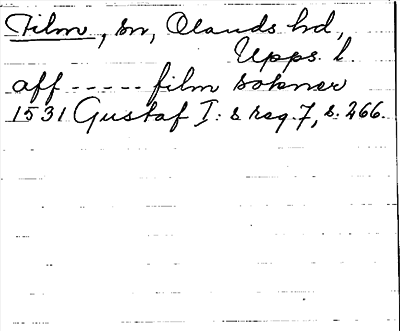 Film, sn, Olands hd,
Upps. l.
aff ----- film sokner
1531 Gustaf I:s reg. 7, s. 266.